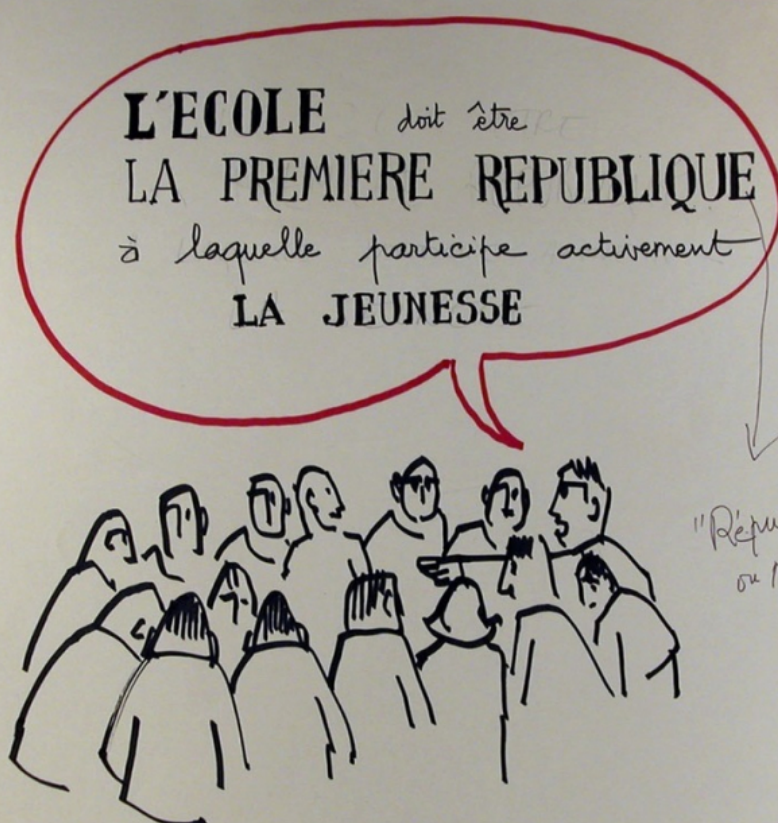 L'ECOLE doit être
LA PREMIERE REPUBLIQUE
à laquelle participe activement
LA JEUNESSE
ou